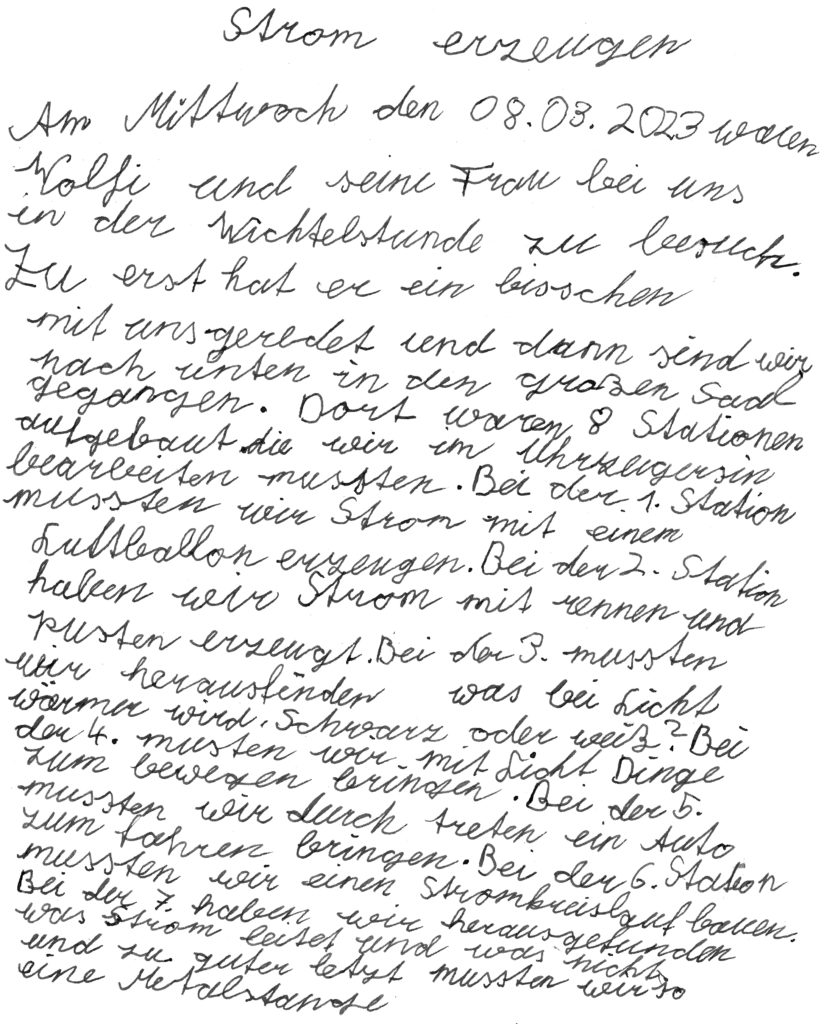 Strom erzeugen
Am Mittwoch den 08.03.2023 waren
Wolfi und seine Frau bei uns
in der Wichtelstunde zu besuch.
Zu erst hat er ein bisschen
mit uns geredet und dann sind wir
nach unten in den großen Saal
gegangen. Dort waren 8 Stationen
aufgebaut die wir im Uhrzeugersin
bearbeiten mussten. Bei der 1. Station
mussten wir Strom mit einem
Luftballon erzeugen. Bei der 2. Station
haben wir Strom mit rennen und
pusten erzeugt. Bei der 3. mussten
wir herausfinden was bei Licht
wärmer wird. Schwarz oder weiß? Bei
der 4. musten wir mit Licht Dinge
zum bewegen bringen. Bei der 5.
mussten wir durch treten ein Auto
zum fahren bringen. Bei der 6. Station
mussten wir einen Stromkreislauf bauen.
Bei der 7. haben wir herausgefunden
was Strom leitet und was nicht
und zu guter letzt mussten wir so
eine Metalstange